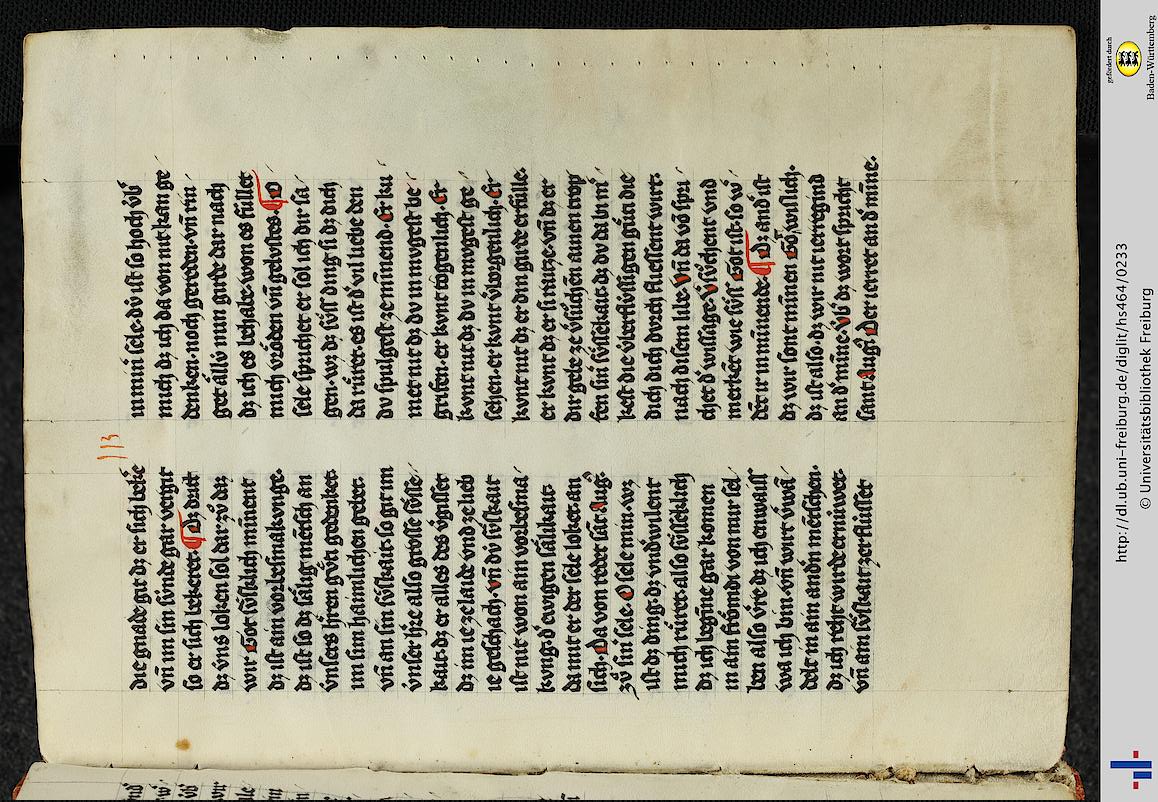 113
die gnade git dz er sich beke
vñ im sin sünde gar vergit
so er sich bekeret. Dz drit
dz vns loken sol dar zů daz
wir Got süsklich minent
dz ist ain vorbesmakunge.
dz ist so dz sälig mensch an
vnsers hren güti gedenket.
vñ an sin süskait. so git im
vnser hre also grosse süsse
kait. dz er alles des vgisset
dz im ie ze laide vnd ze lieb
ie geschach. vñ dü süskait
ist nit won ain vorbesma
kvng. d ewigen sälikait.
da mit er der sele loket an
sich. Da von redet sāt Aug
zů sin sele. O sele min. wz
ist dz ding. dz vnd wilent
mich rüret. also süsseklich
dz ich begine gar komen
in ain frömdi von mir sel
ben also v̄re dz ich enwaiss
wa ich bin. vñ wirt v̄wā
delt in ain andn menschen.
dz ich reht wirde erniwet.
vñ ain süskait zerflüsset
in mini sele. dü ist so hoch vb
mich dz ich da von nit kan ge
denken. noch gereden. vñ rin
get allü min girde dar nach
dz ich es behabe. won es füllet
mich vröden vñ gelustes. O
sele sprichet er sol ich dir sa
gen. wz dz süss ding si dz dich
da rüret. es ist d vil liebe den
du spulgest ze minend. Er ku
met nit dz du in mugest be
grifen. er kvnt togenlich. Er
kvnt nit dz du in mugest ge
sehen. er kvnt vborgenlich. Er
kvnt nit dz er din girde erfülle.
er kvnt dz er si raitze. vñ dz er
dir gebe ze v̄sůchen ainen trop
fen sin süssekait. dz du da bi m
kest die vberflüssigen güti die
dich dvrch fliessent wirt.
nach disem libe. Vñ da vō spri
chet d wissage. v̄süchent vnd
merket wie süss Got ist. so w
det ir in minende. Dz and ist
dz wir sont minen Got wislich.
dz ist also. dz wir nit ierregind
an d mine. vb dz wort spricht
sant Augꝰ. Der ierret an d mine.
http://dl.ub.uni-freiburg.de/diglit/hs464/0233
© Universitätsbibliothek Freiburg
gefördert durch
Baden-Württemberg